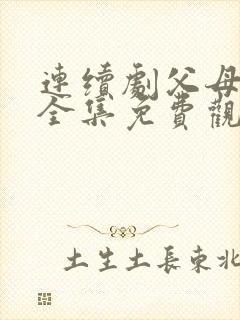 連續劇父母
全集免費觀
土生土長東北